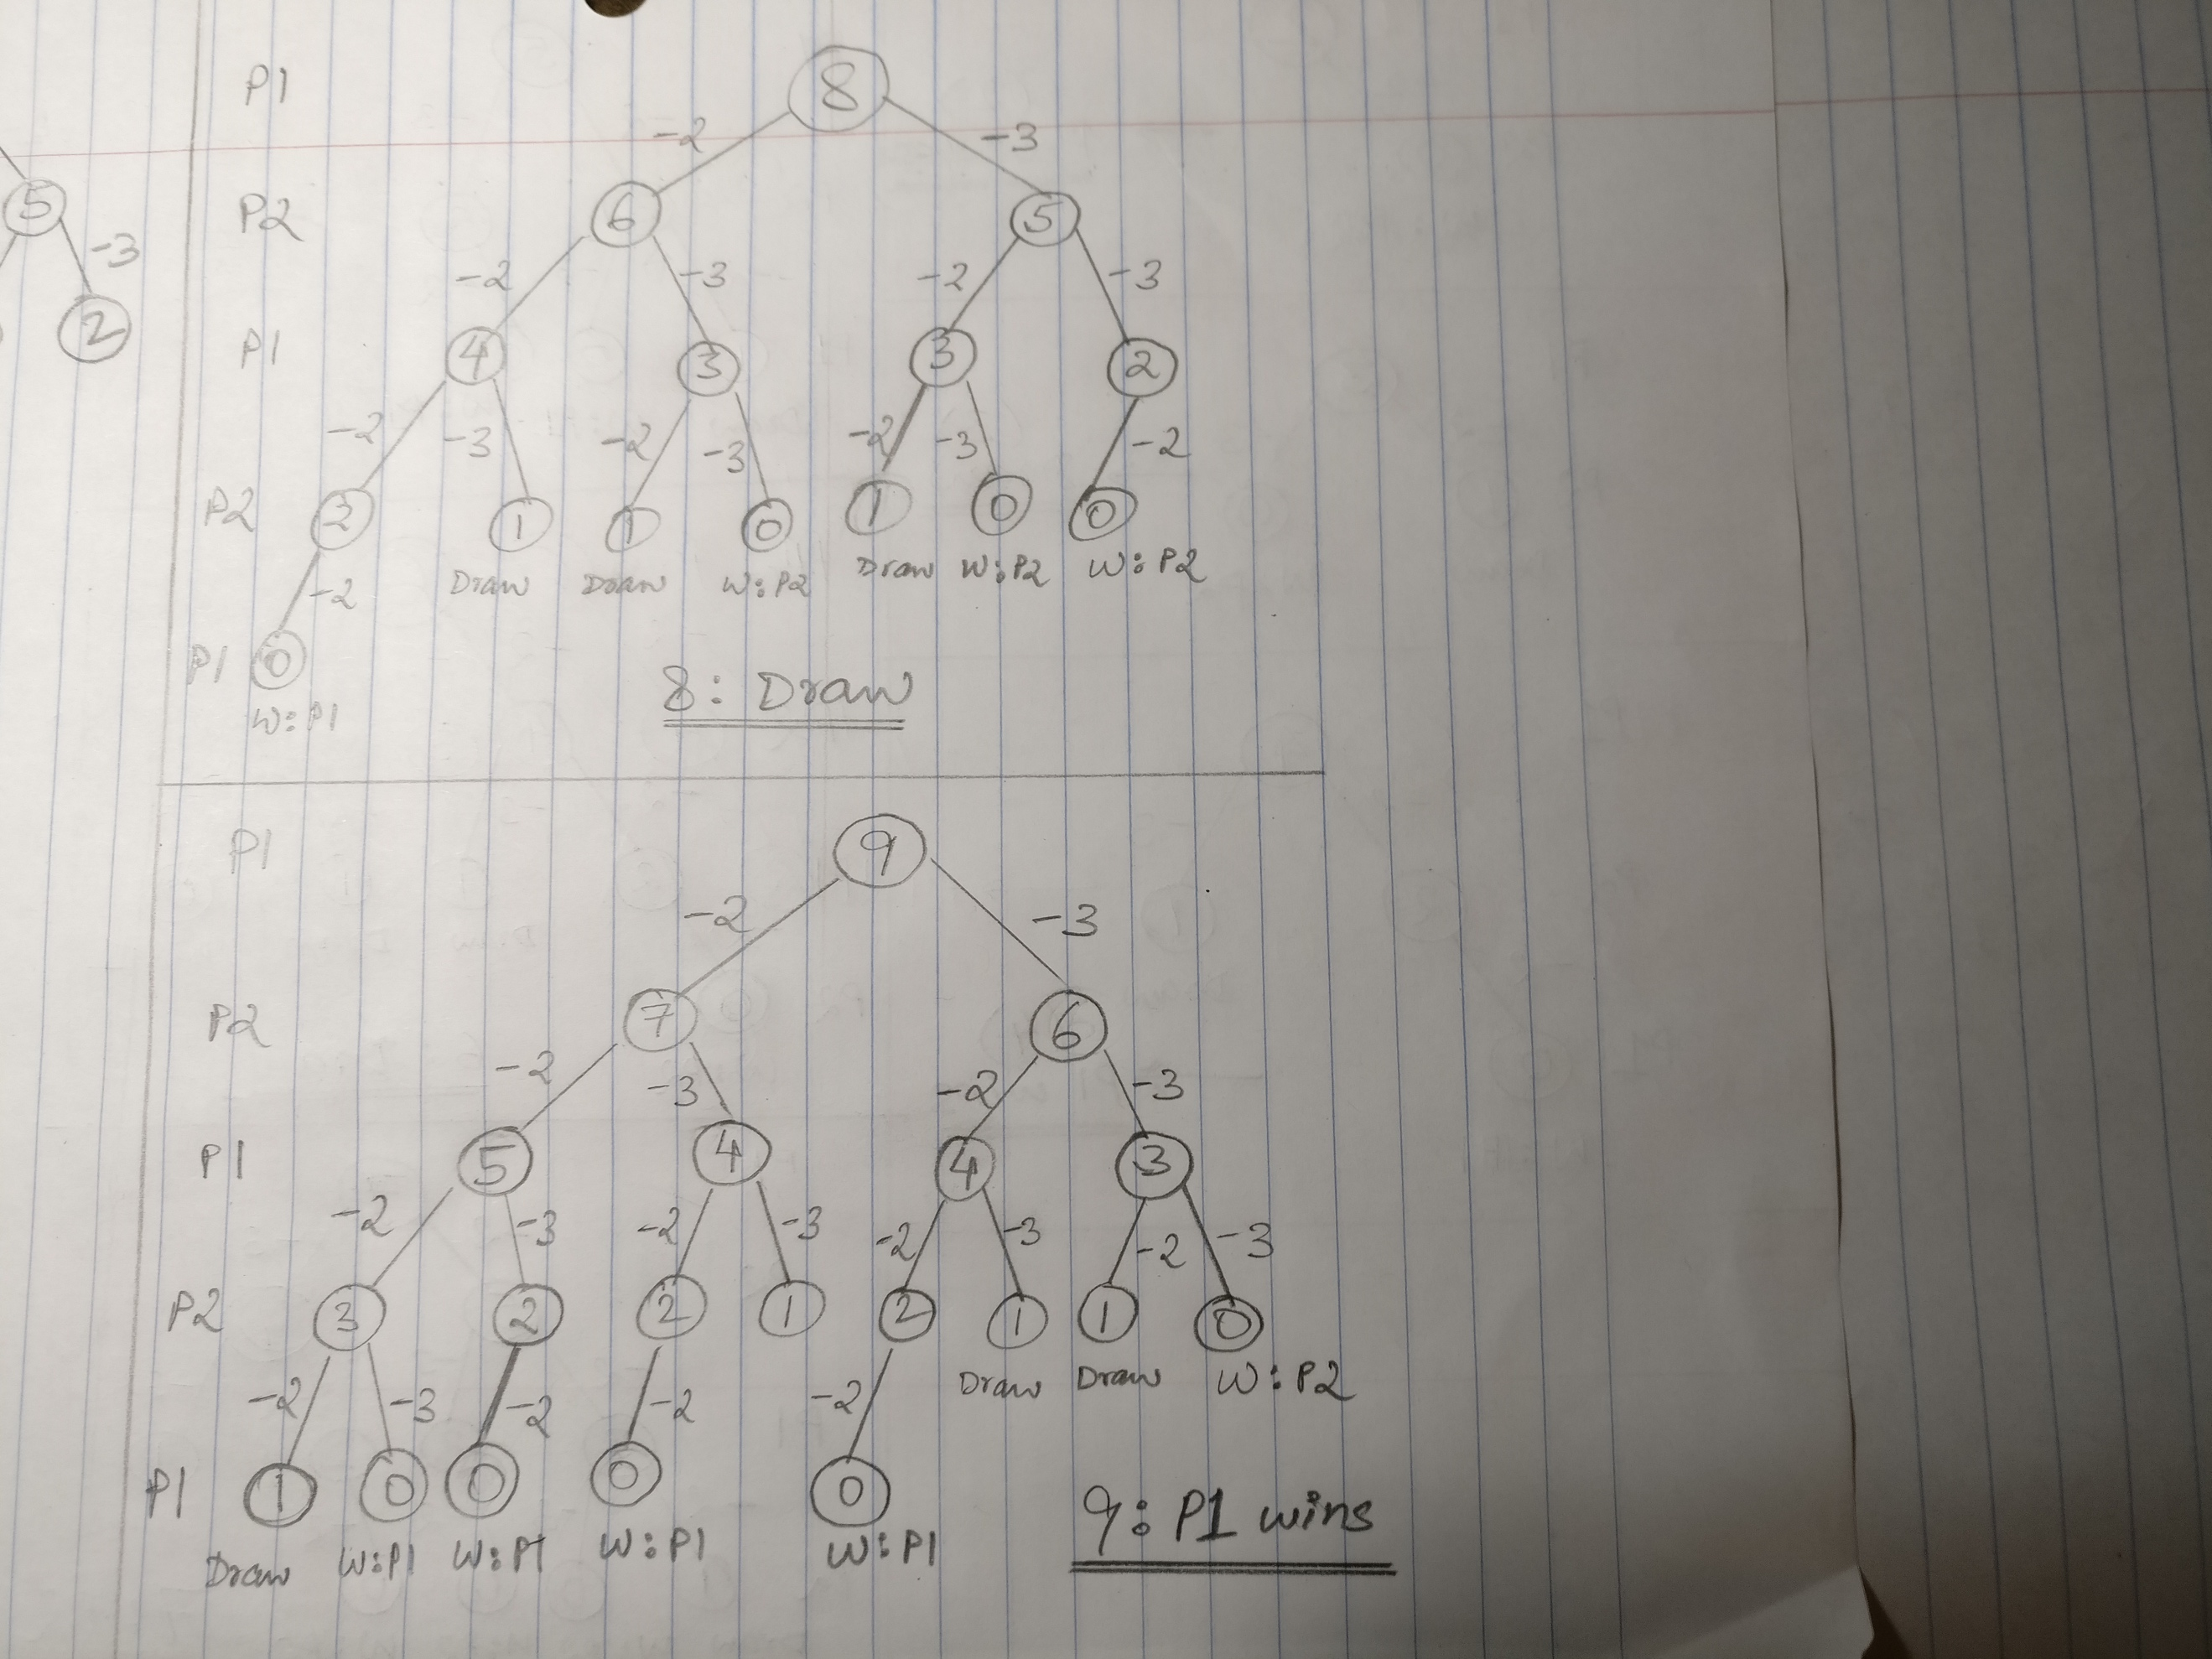 P1 8
-2 -3
5 P2 6 5
-3 -2 -3 -2 -3
2 P1 4 3 3 2
-2 -3 -2 -3 -2 -3 -2
P2 2 1 1 0 1 0 0
Draw Draw W:P2 Draw W:P2 W:P2
-2
P1 0
W:P1
8: Draw
P1 9
-2 -3
P2 7 6
-2 -3 -2 -3
P1 5 4 4 3
-2 -3 -2 -3 -2 -3 -2 -3
P2 3 2 2 1 2 1 1 0
Draw Draw W:P2
-2 -3 -2 -2 -2
P1 1 0 0 0 0
Draw W:P1 W:P1 W:P1 W:P1
9: P1 wins